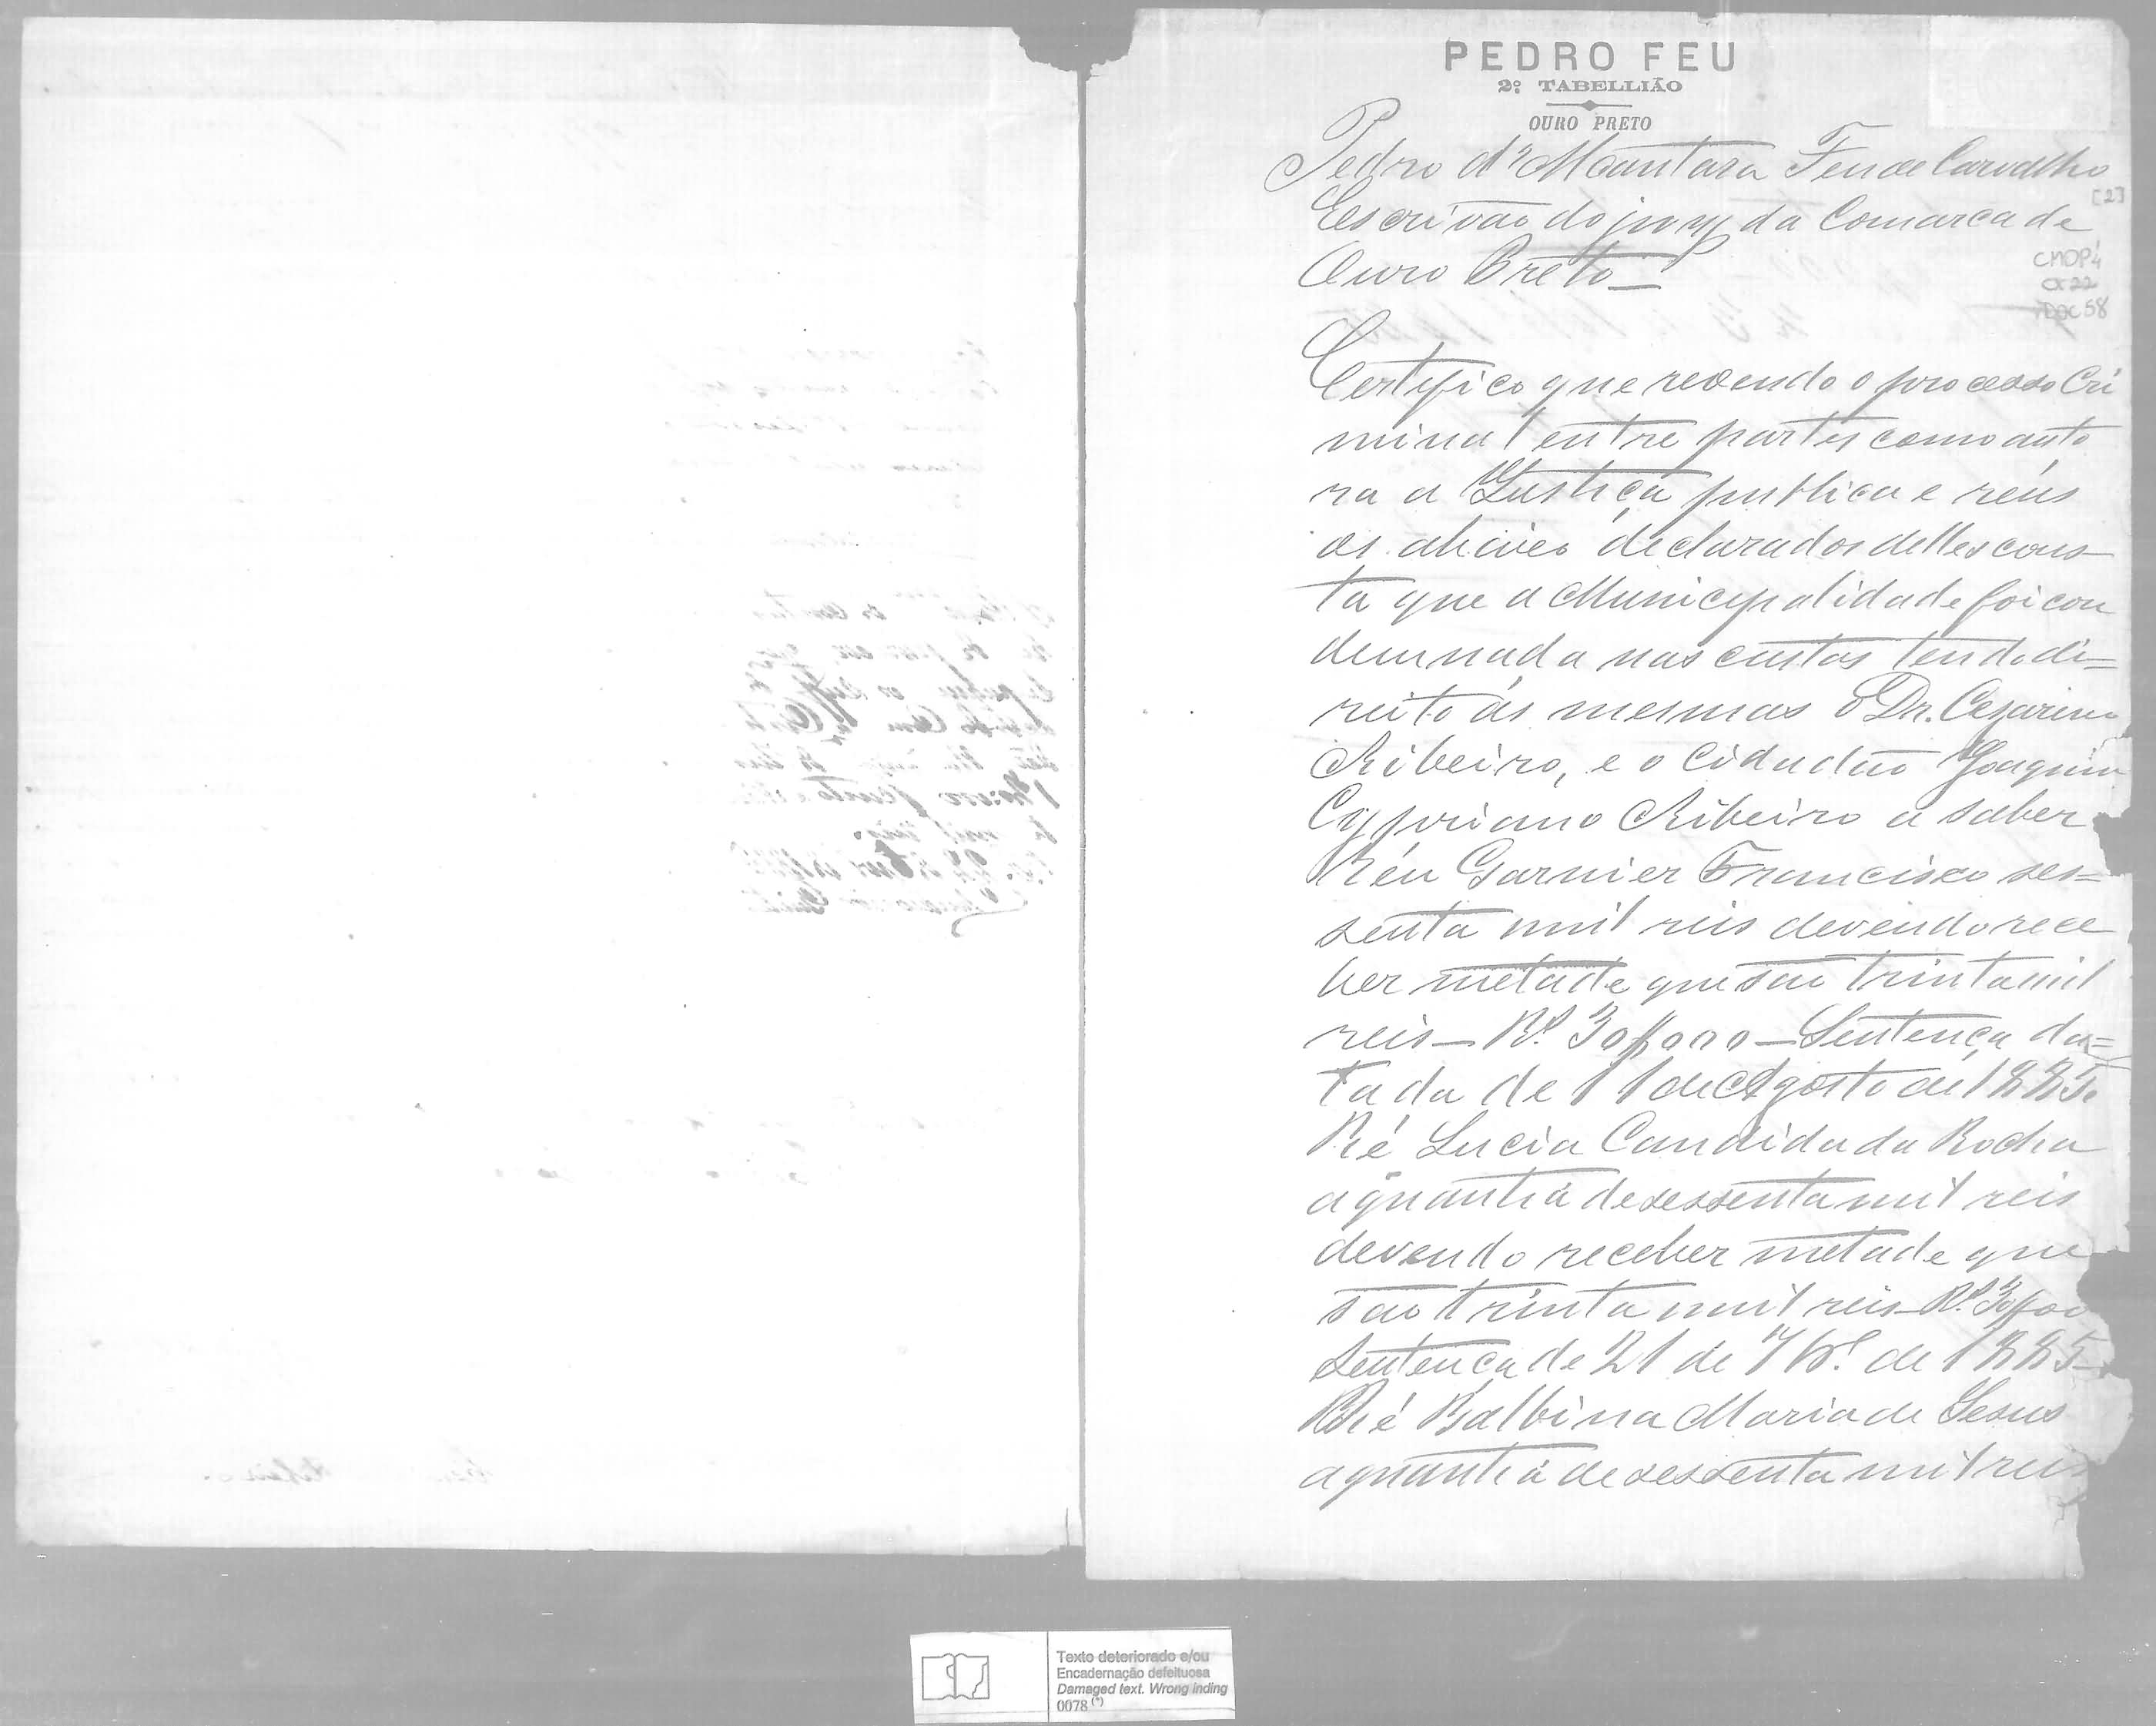 PEDRO FEU
2º TABELLIÃO
OURO PRETO
Pedro d'Alcantara Feu de Carvalho
[2]
Escrivão do jury da Comarca de
Ouro Preto —
CMOP
CX 22
DOC 58
Certifico que revendo o processo Cri
minal entre partes como auto
ra a Justiça publica e réus
os abaixo declarados delles cons
ta que a Municipalidade foi con
demnada nas custas tendo di=
reito ás mesmas o Dr. Cezarino
Ribeiro, e o Cidadão Joaquim
Cypriano Ribeiro a saber
Réu Garnier Francisco ses=
senta mil reis devendo rece
ber metade que são trinta mil
reis — Rs. 30$000 — Sentença da=
tada de 11 de Agosto de 1885.
Ré Lucia Candida da Rocha
a quantia de sessenta mil reis
devendo receber metade que
são trinta mil reis — Rs. 30$00
Sentença de 21 de 7br. de 1885 —
Ré Balbina Maria de Jesus
a quantia de sessenta mil reis
Texto deteriorado e/ou
Encadernação defeituosa
Damaged text. Wrong inding
0078 (*)